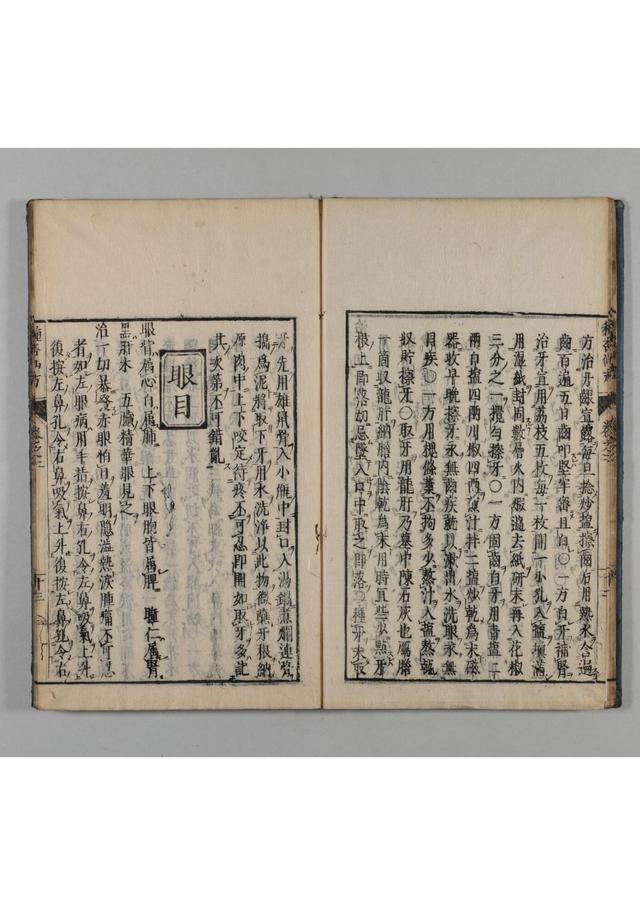 方治牙齦宣露每旦捻炒鹽擦齒右用熱水合過
齒百遍五日齒叩堅牢審且白〇一方白牙補腎
治牙宣用荔枝五枚每一枚開一小孔入鹽填滿
用濕紙封固數層火內煅過去紙研末再入花椒
三分之一攪勻擦牙〇一方固齒白牙用青鹽二
兩白鹽四兩川椒四兩煎汁拌二鹽炒乾爲末磁
器收早晚擦牙永無齒疾就以漱出水洗眼永無
目疾〇一方用槐條葉不拘多少熬汁入鹽熬乾
收貯擦牙〇取牙用龍肝乃墓中陳石灰也屬膽
一箇收龍肝納膽內陰乾爲末用時宜些少點牙
根上即落切忌墮入口中取之即落〇種牙未取
牙先用雄鼠脊入小甁中封口入湯鍋煮爛連脊
搗爲泥將取下牙用水洗淨以此物微蘸牙根納
原肉中上下咬定待疼不可忍即開如取牙多記
其次第不可錯亂
眼目
眼眥屬心白屬肺 上下眼胞皆屬脾 瞳仁屬腎
黑肝木 五臟精華眼見之
治一切暴發赤眼怕日羞明隱澁熱淚腫痛不可忍
者如左眼病用手指按鼻右孔令左鼻吸氣上升
後按左鼻孔令右鼻吸氣上升後按左鼻孔令右